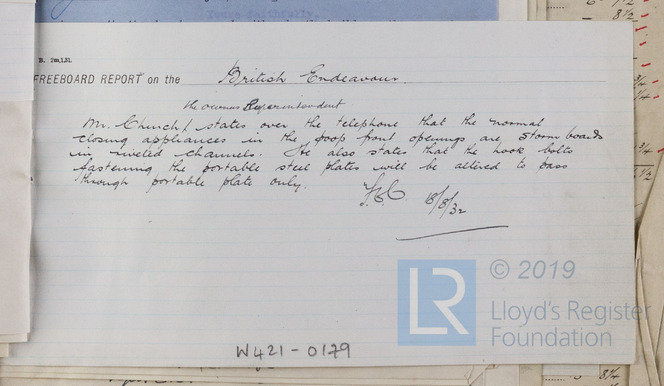 Yours faithfully,
8½
R. 2m,1,31.
FREEBOARD REPORT on the British Endeavour.
the owners Superintendent
Mr. Church, states over the telephone that the normal
closing appliances in the poop front openings are storm boards
in riveted channels. He also states that the hook bolts
fastening the portable steel plates will be altered to pass
through portable plate only.
18/8/32
© 2019
LR
Lloyd's Register
Foundation
W421-0179